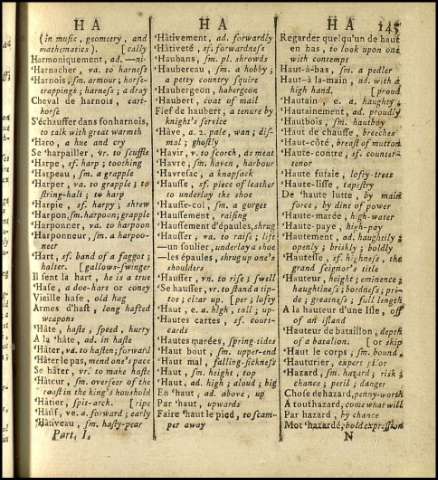 H A
H A
H A
145
(in music, geometry, and
mathematics). [cally
Harmoniquement, ad. —ni-
'Harnacher, va. to harness
'Harnois, sm. armour; horse-
trappings; harness; a dray
Cheval de harnois, cart-
horse
S'échauffer dans son harnois,
to talk with great warmth
'Haro, a hue and cry
Se 'harpailler, vr. to scuffle
'Harpe, sf. harp; toothing
'Harpeau, sm. a grapple
'Harper, va. to grapple; to
string-halt; to harp
'Harpie, sf. harpy; shrew
'Harpon, sm. harpoon; grapple
'Harponner, va. to harpoon
'Harponneur, sm. a harpoo-
neer
'Hart, sf. band of a faggot;
halter. [gallows-swinger
Il sent la hart, he is a true
'Hase, a doe-hare or coney
Vieille hase, old hag
Armes d'hast, long hafted
weapons
'Hâte, haste, speed, hurry
A la 'hâte, ad. in haste
'Hâter, va. to hasten; forward
'Hâter le pas, mend one's pace
Se hâter, vr. to make haste
'Hâteur, sm. overseer of the
roast in the king's houshold
'Hâtier, spit-rack. [ripe
'Hâtif, ve. a. forward; early
'Hâtiveau, sm. hasty-pear
Part. I.
'Hâtivement, ad. forwardly
'Hâtiveté, sf. forwardness
'Haubans, sm. pl. shrowds
'Haubereau, sm. a hobby;
a petty country squire
'Haubergeon, habergeon
'Haubert, coat of mail
Fief de haubert, a tenure by
knight's service
'Hâve, a. 2. pale, wan; dis-
mal; ghostly
'Havir, v. to scorch, as meat
'Havre, sm. haven, harbour
'Havresac, a knapsack
'Hausse, sf. piece of leather
to underlay the shoe
'Hausse-col, sm. a gorget
'Haussement, raising
'Haussement d'épaules, shrug
'Hausser, va. to raise; lift
—un soulier, underlay a shoe
—les épaules, shrug up one's
shoulders
'Hausser, vn. to rise; swell
'Se hausser, vr. to stand a tip-
toe; clear up. [per; lofty
'Haut, e. a. high, tall; up-
Hautes cartes, sf. court-
cards
'Hautes marées, spring-tides
'Haut bout, sm. upper-end
'Haut mal, falling-sickness
'Haut, sm. height, top
'Haut, ad. high; aloud; big
En 'haut, ad. above, up
Par 'haut, upwards
Faire 'haut le pied, to scam-
per away
Regarder quelqu'un de haut
en bas, to look upon one
with contempt
Haut-à-bas, sm. a pedler
Haut-à la-main, ad. with a
high hand. [proud
'Hautain, e. a. haughty;
'Hautainement, ad. proudly
'Hautbois, sm. hautboy
'Haut de chausse, breeches
'Haut-côté, breast of mutton
'Haute-contre, sf. counter-
tenor
'Haute futaie, lofty-trees
'Haute-lisse, tapistry
De 'haute lutte, by main
force; by dint of power
'Haute-marée, high-water
'Haute-paye, high-pay
'Hautement, ad. haughtily;
openly; briskly; boldly
'Hautesse, sf. highness, the
grand seignor's title
'Hauteur, height; eminence;
haughtiness; boldness; pri-
de; greatness; full length
A la hauteur d'une Isle, off
of an island
'Hauteur de bataillon, depth
of a batalion. [or skip
'Haut le corps, sm. bound,
'Hauturier, expert pilot
'Hazard, sm. hazard, risk;
chance; peril; danger
Chose de hazard, penny-worth
A tout hazard, come what will
Par hazard, by chance
Mot 'hazardé, bold expression
N